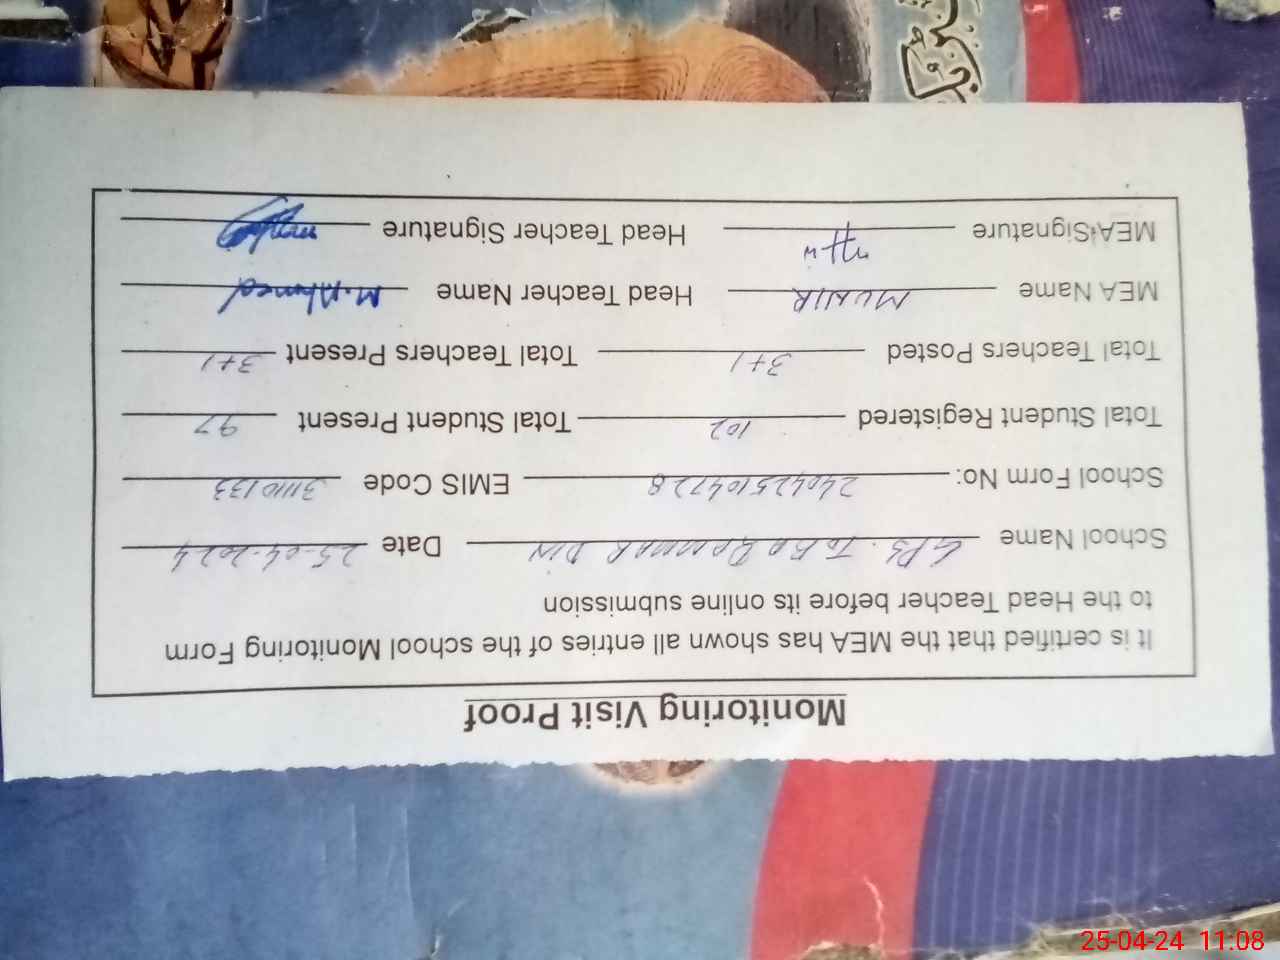 Monitoring Visit Proof
It is certified that the MEA has shown all entries of the school Monitoring Form
to the Head Teacher before its online submission
School Name GPS. TOBA QAMMAR DIN Date 25-04-2024
School Form No: 240425104728 EMIS Code 31110133
Total Student Registered 102 Total Student Present 97
Total Teachers Posted 3+1 Total Teachers Present 3+1
MEA Name MUNIR Head Teacher Name M. Ahmed
MEA Signature Head Teacher Signature
25-04-24 11:08